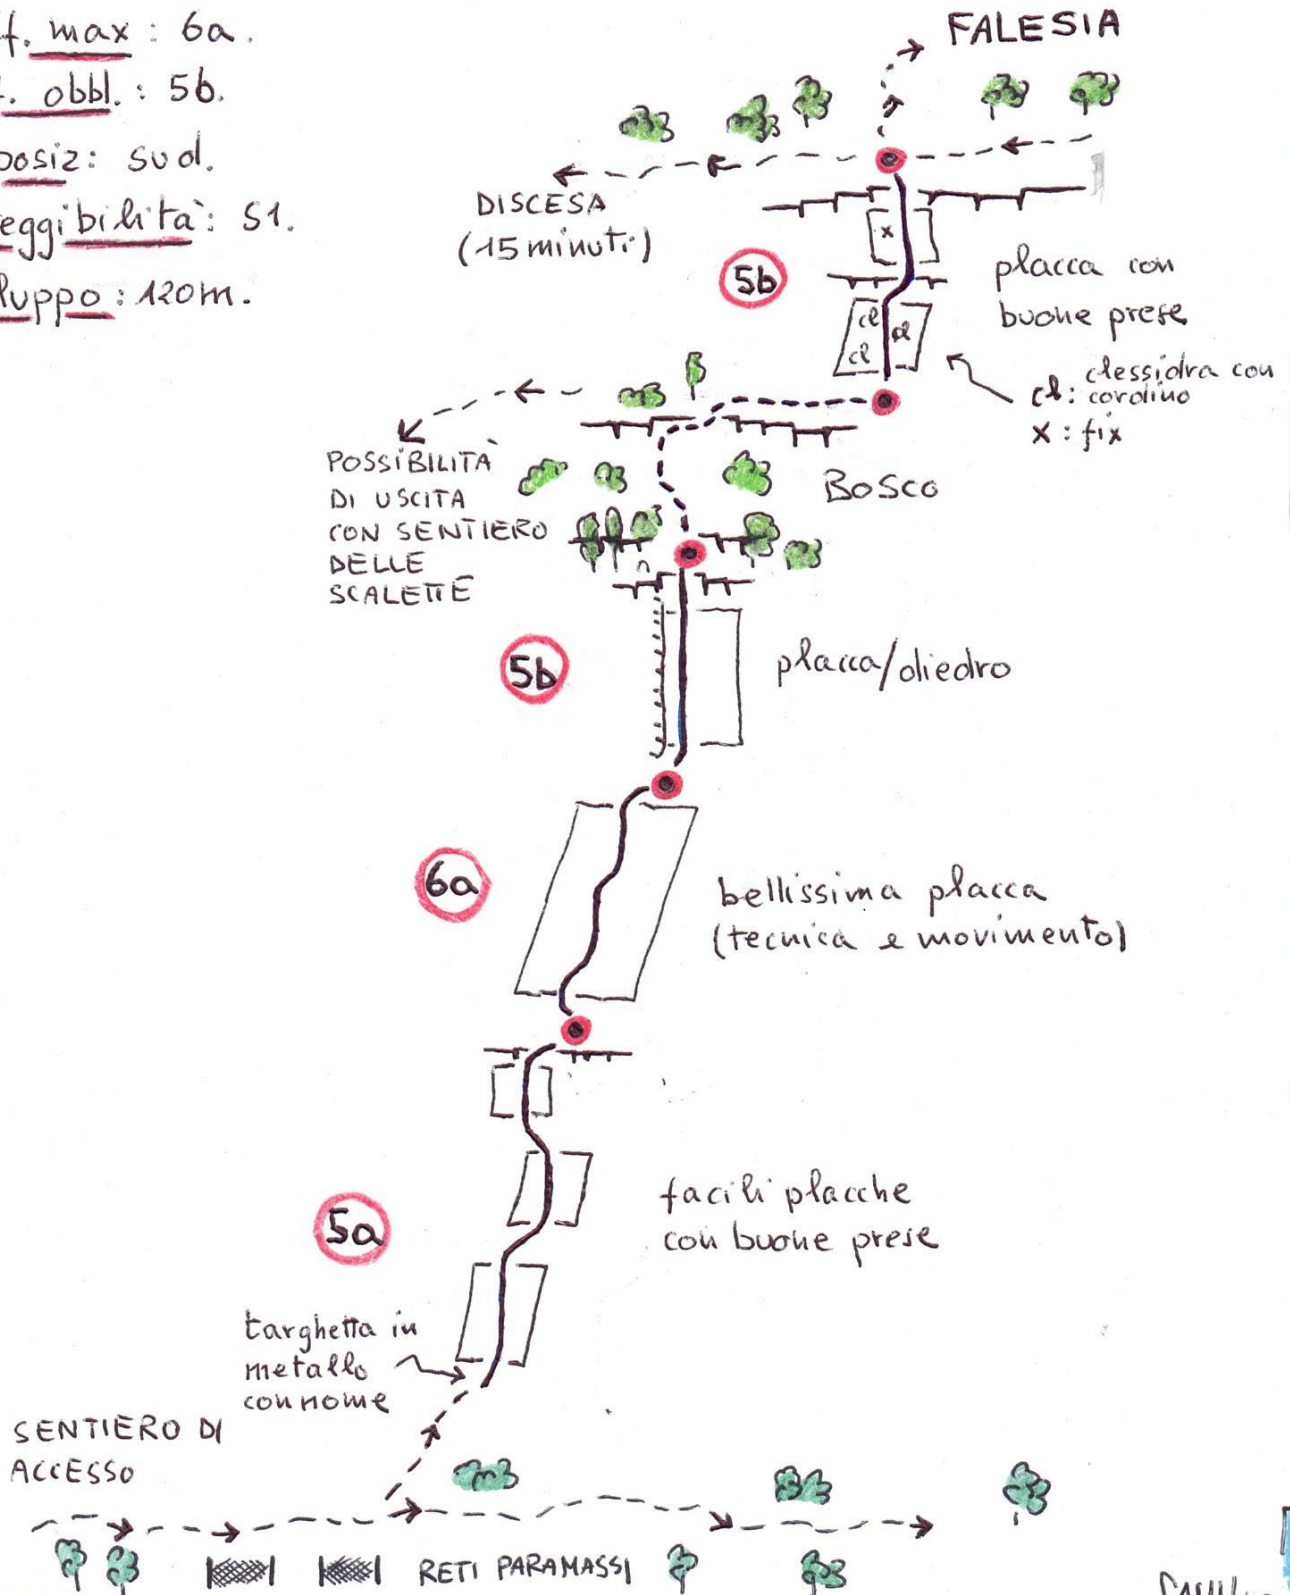 max : 6a.
obbl. : 5b.
sud.
S1.
120m.
FALESIA
DISCESA
(15 minuti)
5b
x
placca con
buone prese
cl
cl
cl
cl: clessidra con
cordino
x : fix
POSSIBILITÀ
DI USCITA
CON SENTIERO
DELLE
SCALETTE
BOSCO
5b
placca/diedro
6a
bellissima placca
(tecnica e movimento)
5a
facili placche
con buone prese
targhetta in
metallo
con nome
SENTIERO DI
ACCESSO
RETI PARAMASSI